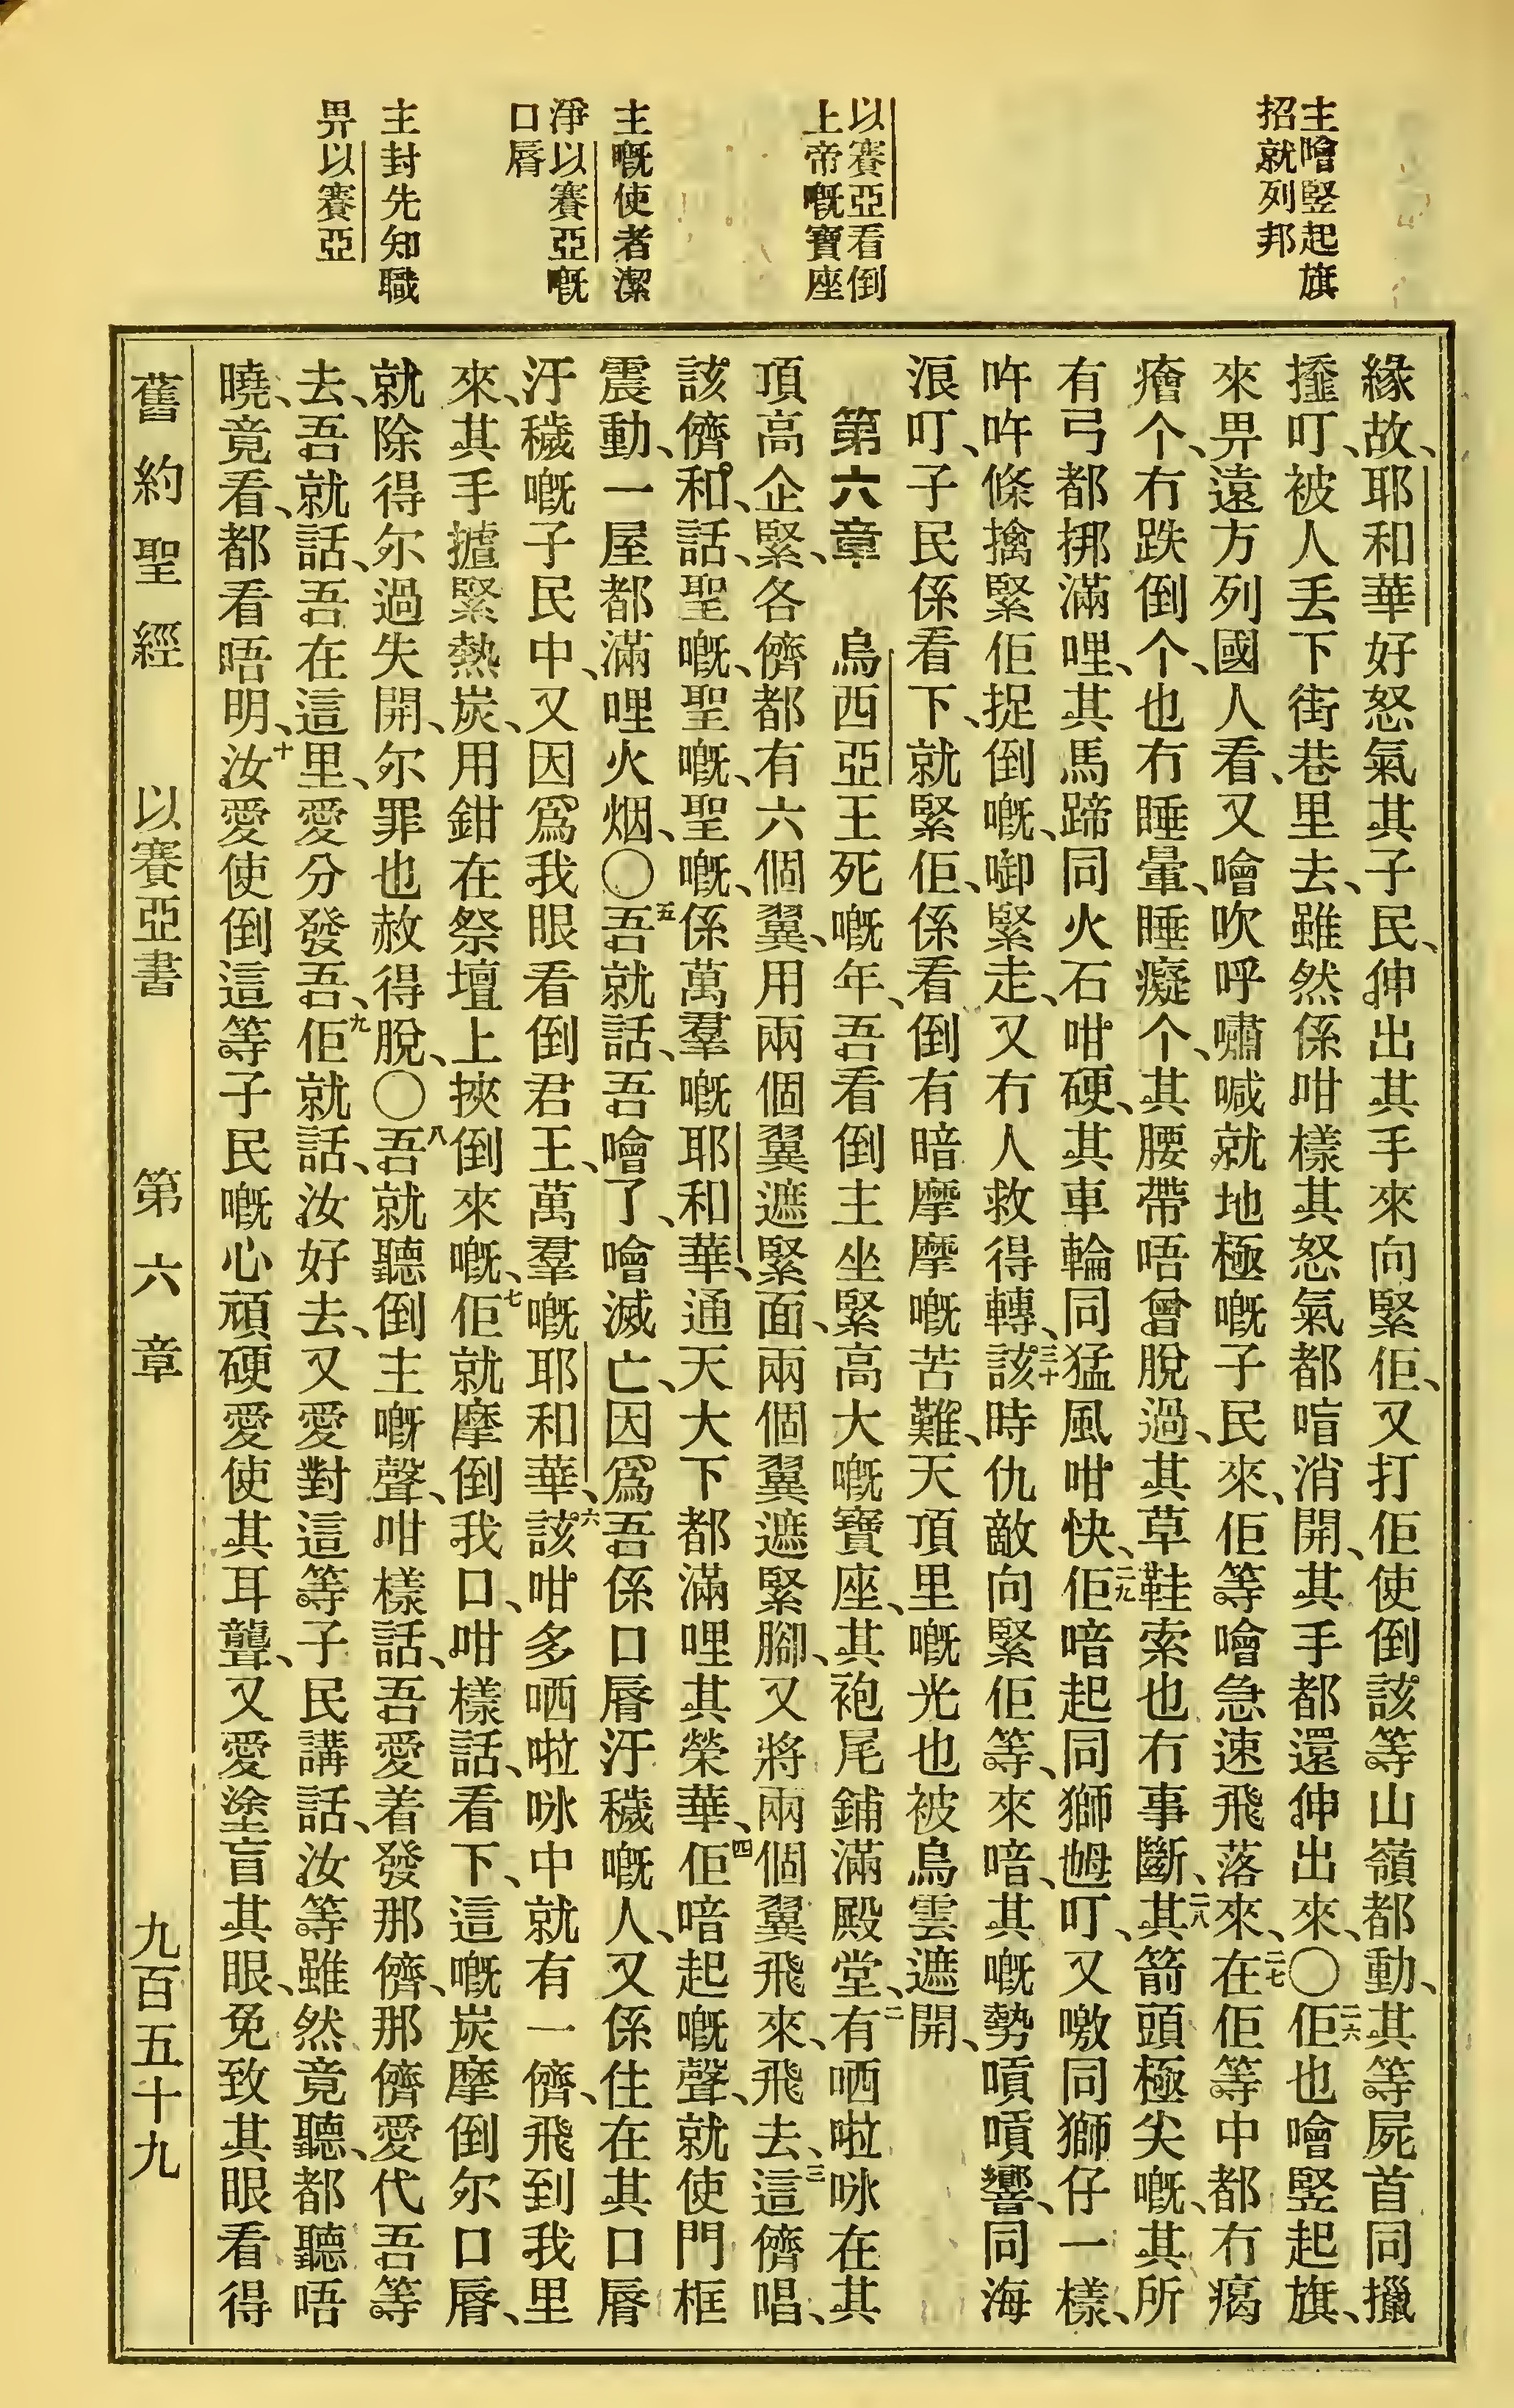 主噲竪起旗
招就列邦
以賽亞看倒
上帝嘅寶座
主嘅使者潔
淨以賽亞嘅
口唇
主封先知職
畀以賽亞
緣故、耶和華好怒氣其子民、伸出其手來向緊佢、又打佢使倒該等山嶺都動、其等屍首同擸
𢶍叮、被人丢下街巷里去、雖然係咁樣其怒氣都唁消開、其手都還伸出來、〇二六佢也噲竪起旗、
來畀遠方列國人看、又噲吹呼嘯喊就地極嘅子民來、佢等噲急速飛落來、二七在佢等中都冇癘
癐个、冇跌倒个、也冇睡暈、睡癡个、其腰帶唔曾脫過、其草鞋索也冇事斷、二八其箭頭極尖嘅、其所
有弓都挷滿哩、其馬蹄同火石咁硬、其車輪同猛風咁快、二九佢喑起同獅乸叮、又噭同獅仔一樣、
吽吽條擒緊佢捉倒嘅、啣緊走、又冇人救得轉、三十該時仇敵向緊佢等、來喑、其嘅勢嗊嗊響、同海
浪叮、子民係看下、就緊佢、係看倒有暗摩摩嘅苦難、天頂里嘅光也被烏雲遮開、
第六章　烏西亞王死嘅年、吾看倒主坐緊高大嘅寶座、其袍尾鋪滿殿堂、二有哂啦咏在其
頂高企緊、各儕都有六個翼、用兩個翼遮緊面、兩個翼遮緊腳、又將兩個翼飛來、飛去、三這儕唱、
該儕和、話、聖嘅、聖嘅、聖嘅、係萬羣嘅耶和華、通天大下都滿哩其榮華、四佢喑起嘅聲、就使門框
震動、一屋都滿哩火烟、〇五吾就話、吾噲了、噲滅亡、因爲吾係口唇汙穢嘅人、又係住在其口唇
汙穢嘅子民中、又因爲我眼看倒君王、萬羣嘅耶和華、六該咁多哂啦咏中就有一儕、飛到我里
來、其手攎緊熱炭、用鉗在祭壇上挾倒來嘅、七佢就摩倒我口、咁樣話、看下、這嘅炭摩倒尔口唇、
就除得尔過失開、尔罪也赦得脫、〇八吾就聽倒主嘅聲、咁樣話、吾愛着發那儕、那儕愛代吾等
去、吾就話、吾在這里、愛分發吾、九佢就話、汝好去、又愛對這等子民講話、汝等雖然竟聽、都聽唔
曉、竟看、都看唔明、十汝愛使倒這等子民嘅心頑硬愛使其耳聾、又愛塗盲其眼、免致其眼看得
舊約聖經　以賽亞書　第六章　九百五十九